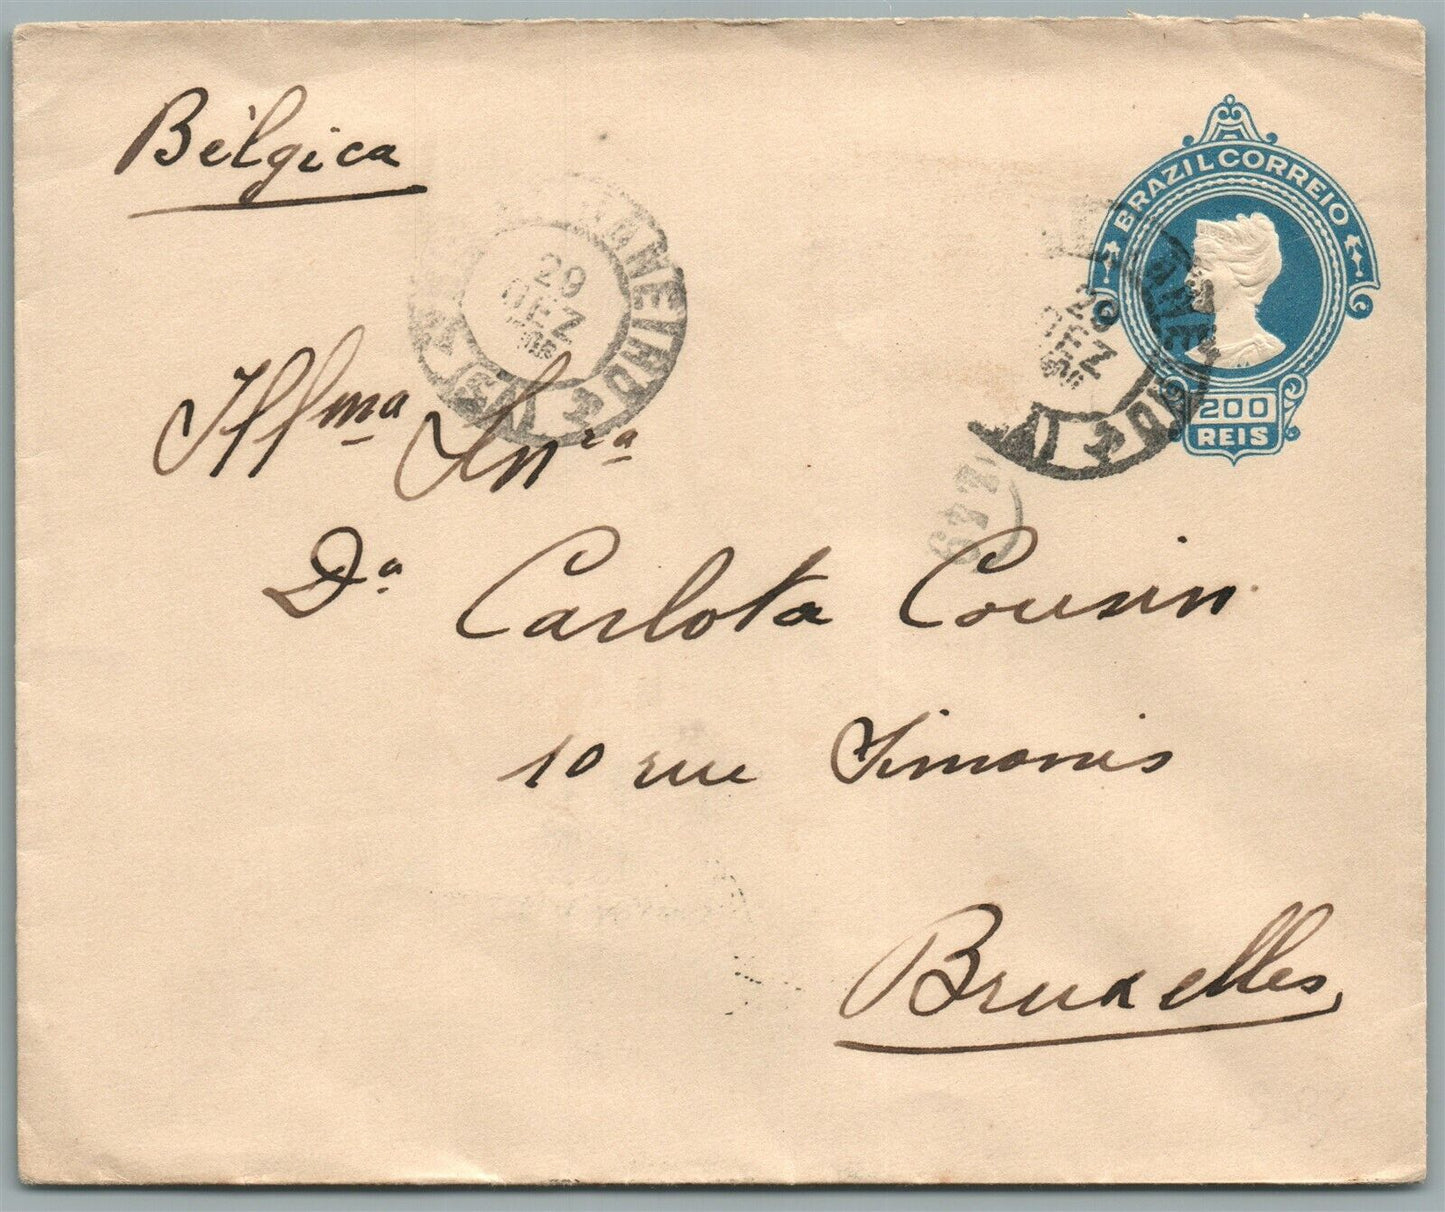 Bélgica
BRAZIL CORREIO
29
DEZ
29
DEZ
200
REIS
Illma Snra
Da Carlota Cousin
10 rue Simonis
Bruxelles